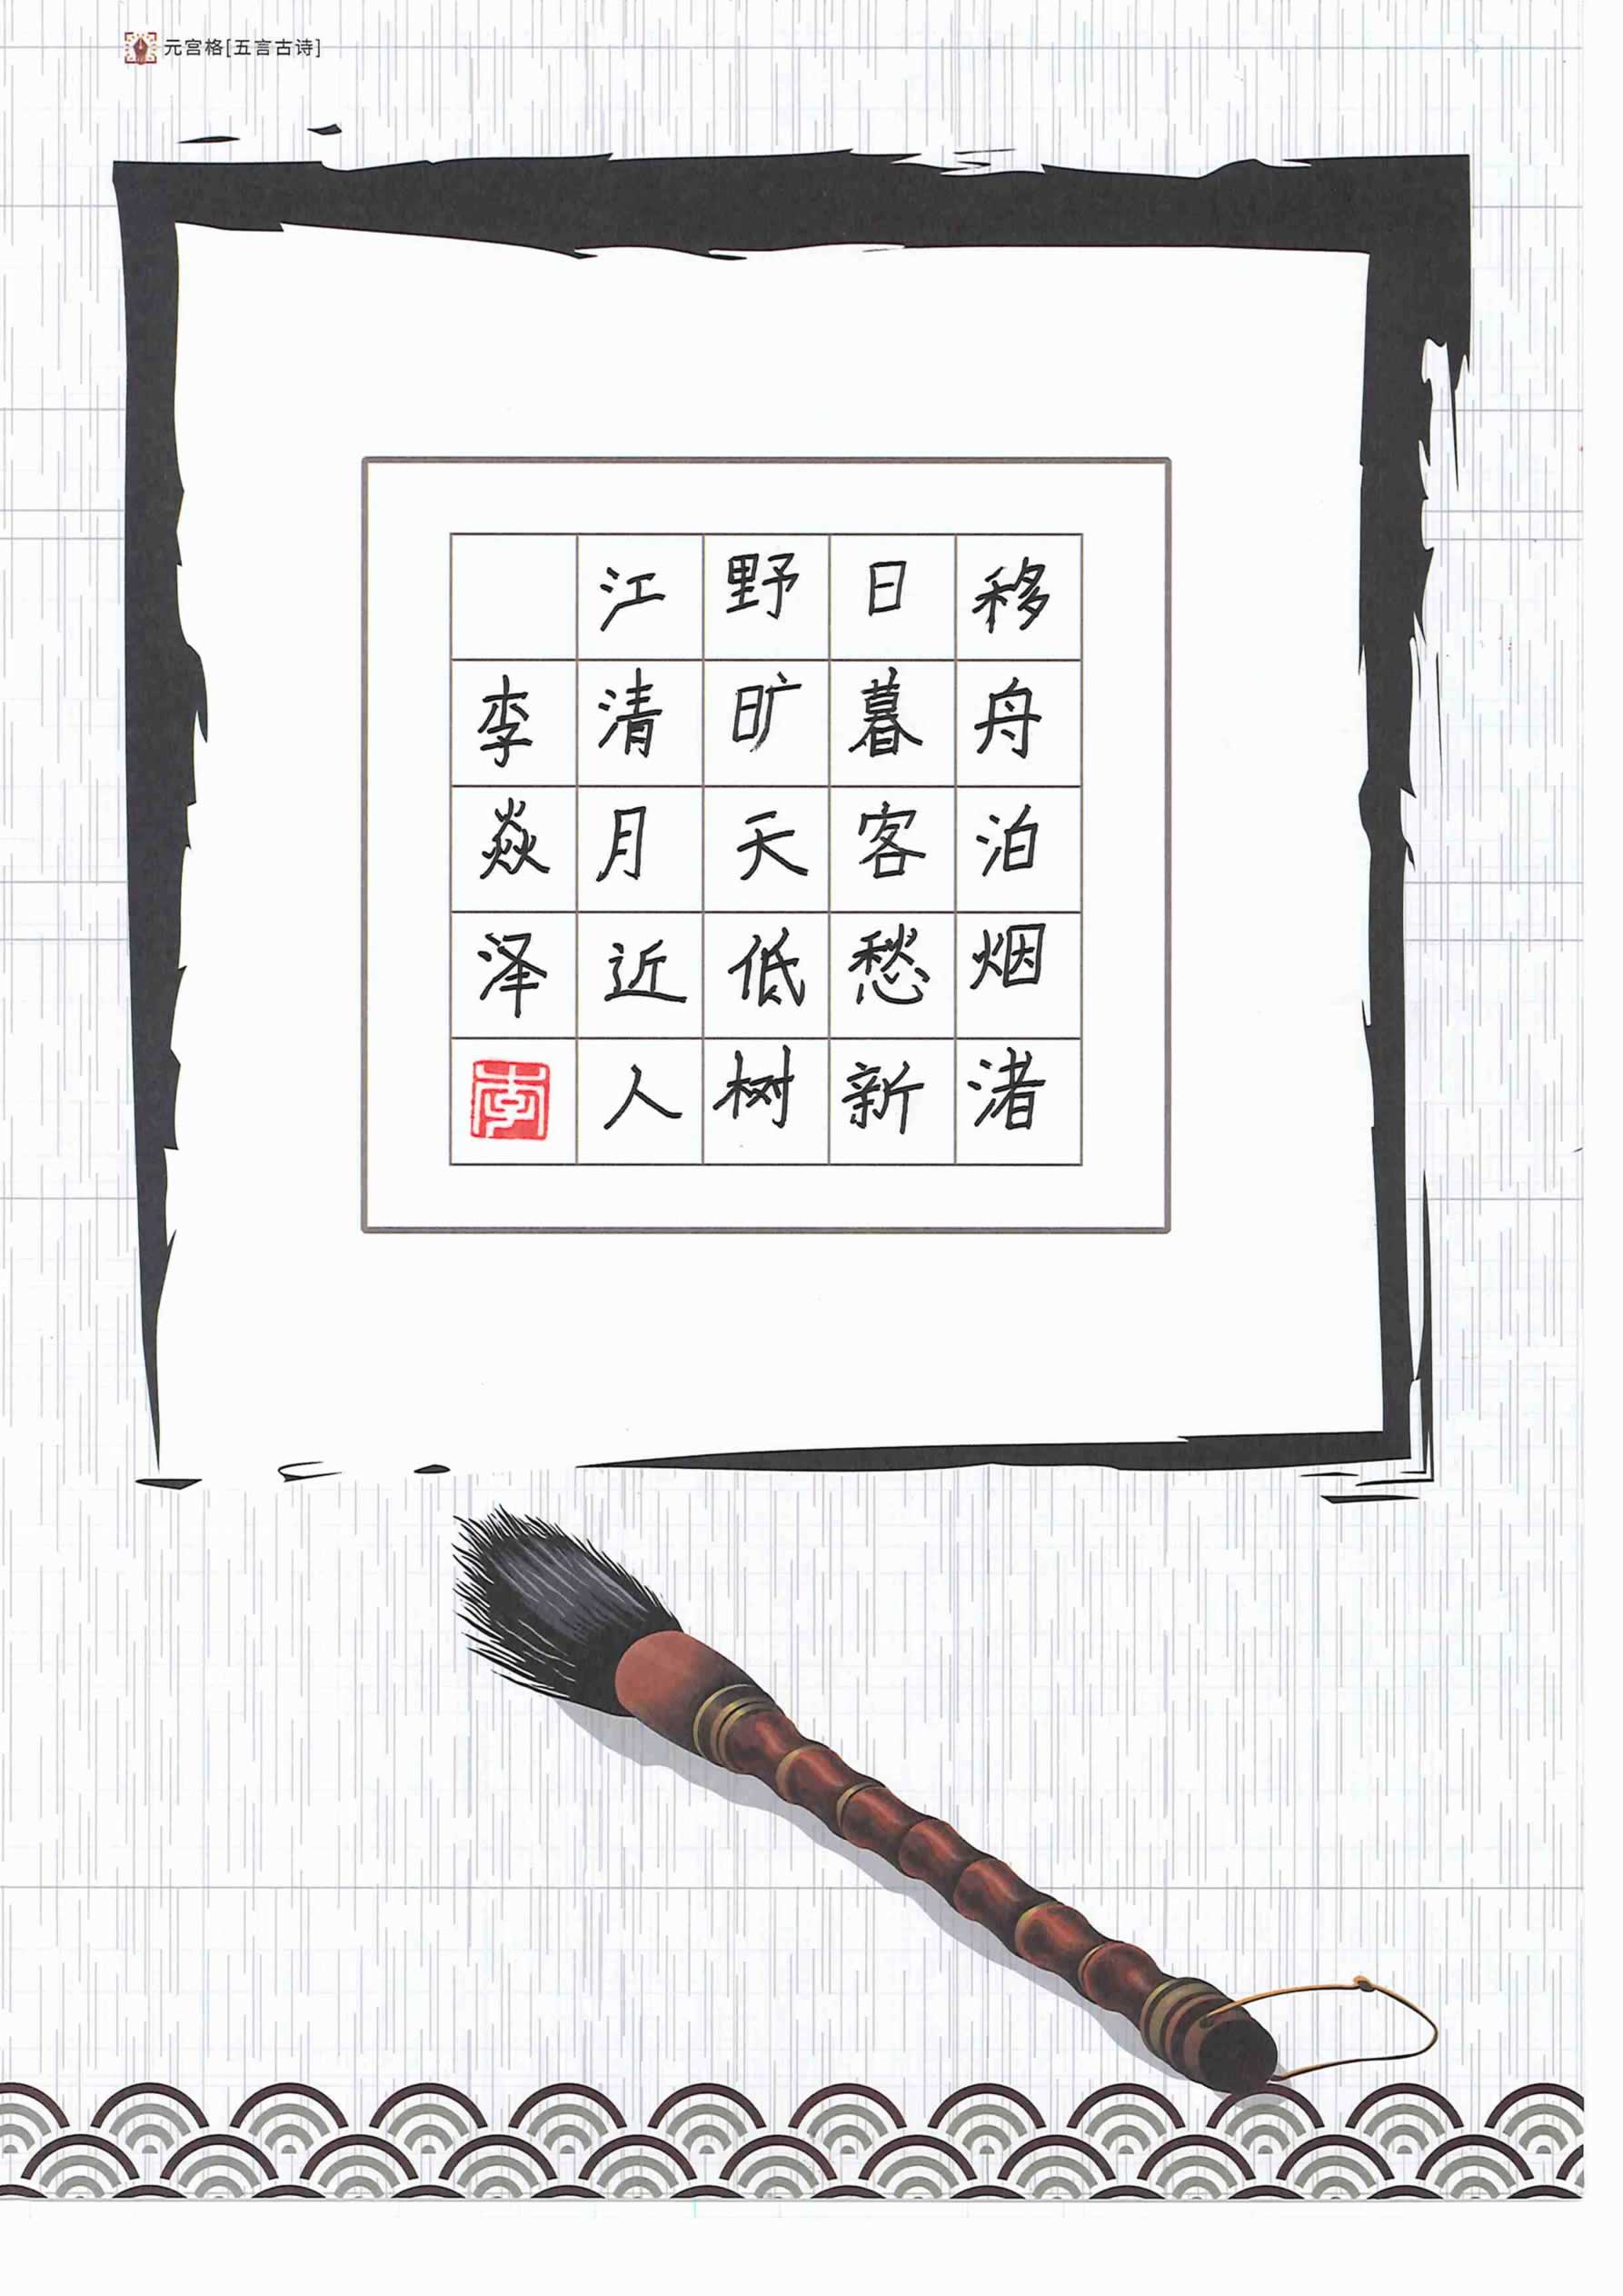 元宫格[五言古诗]
移舟泊烟渚
日暮客愁新
野旷天低树
江清月近人
李焱泽
李